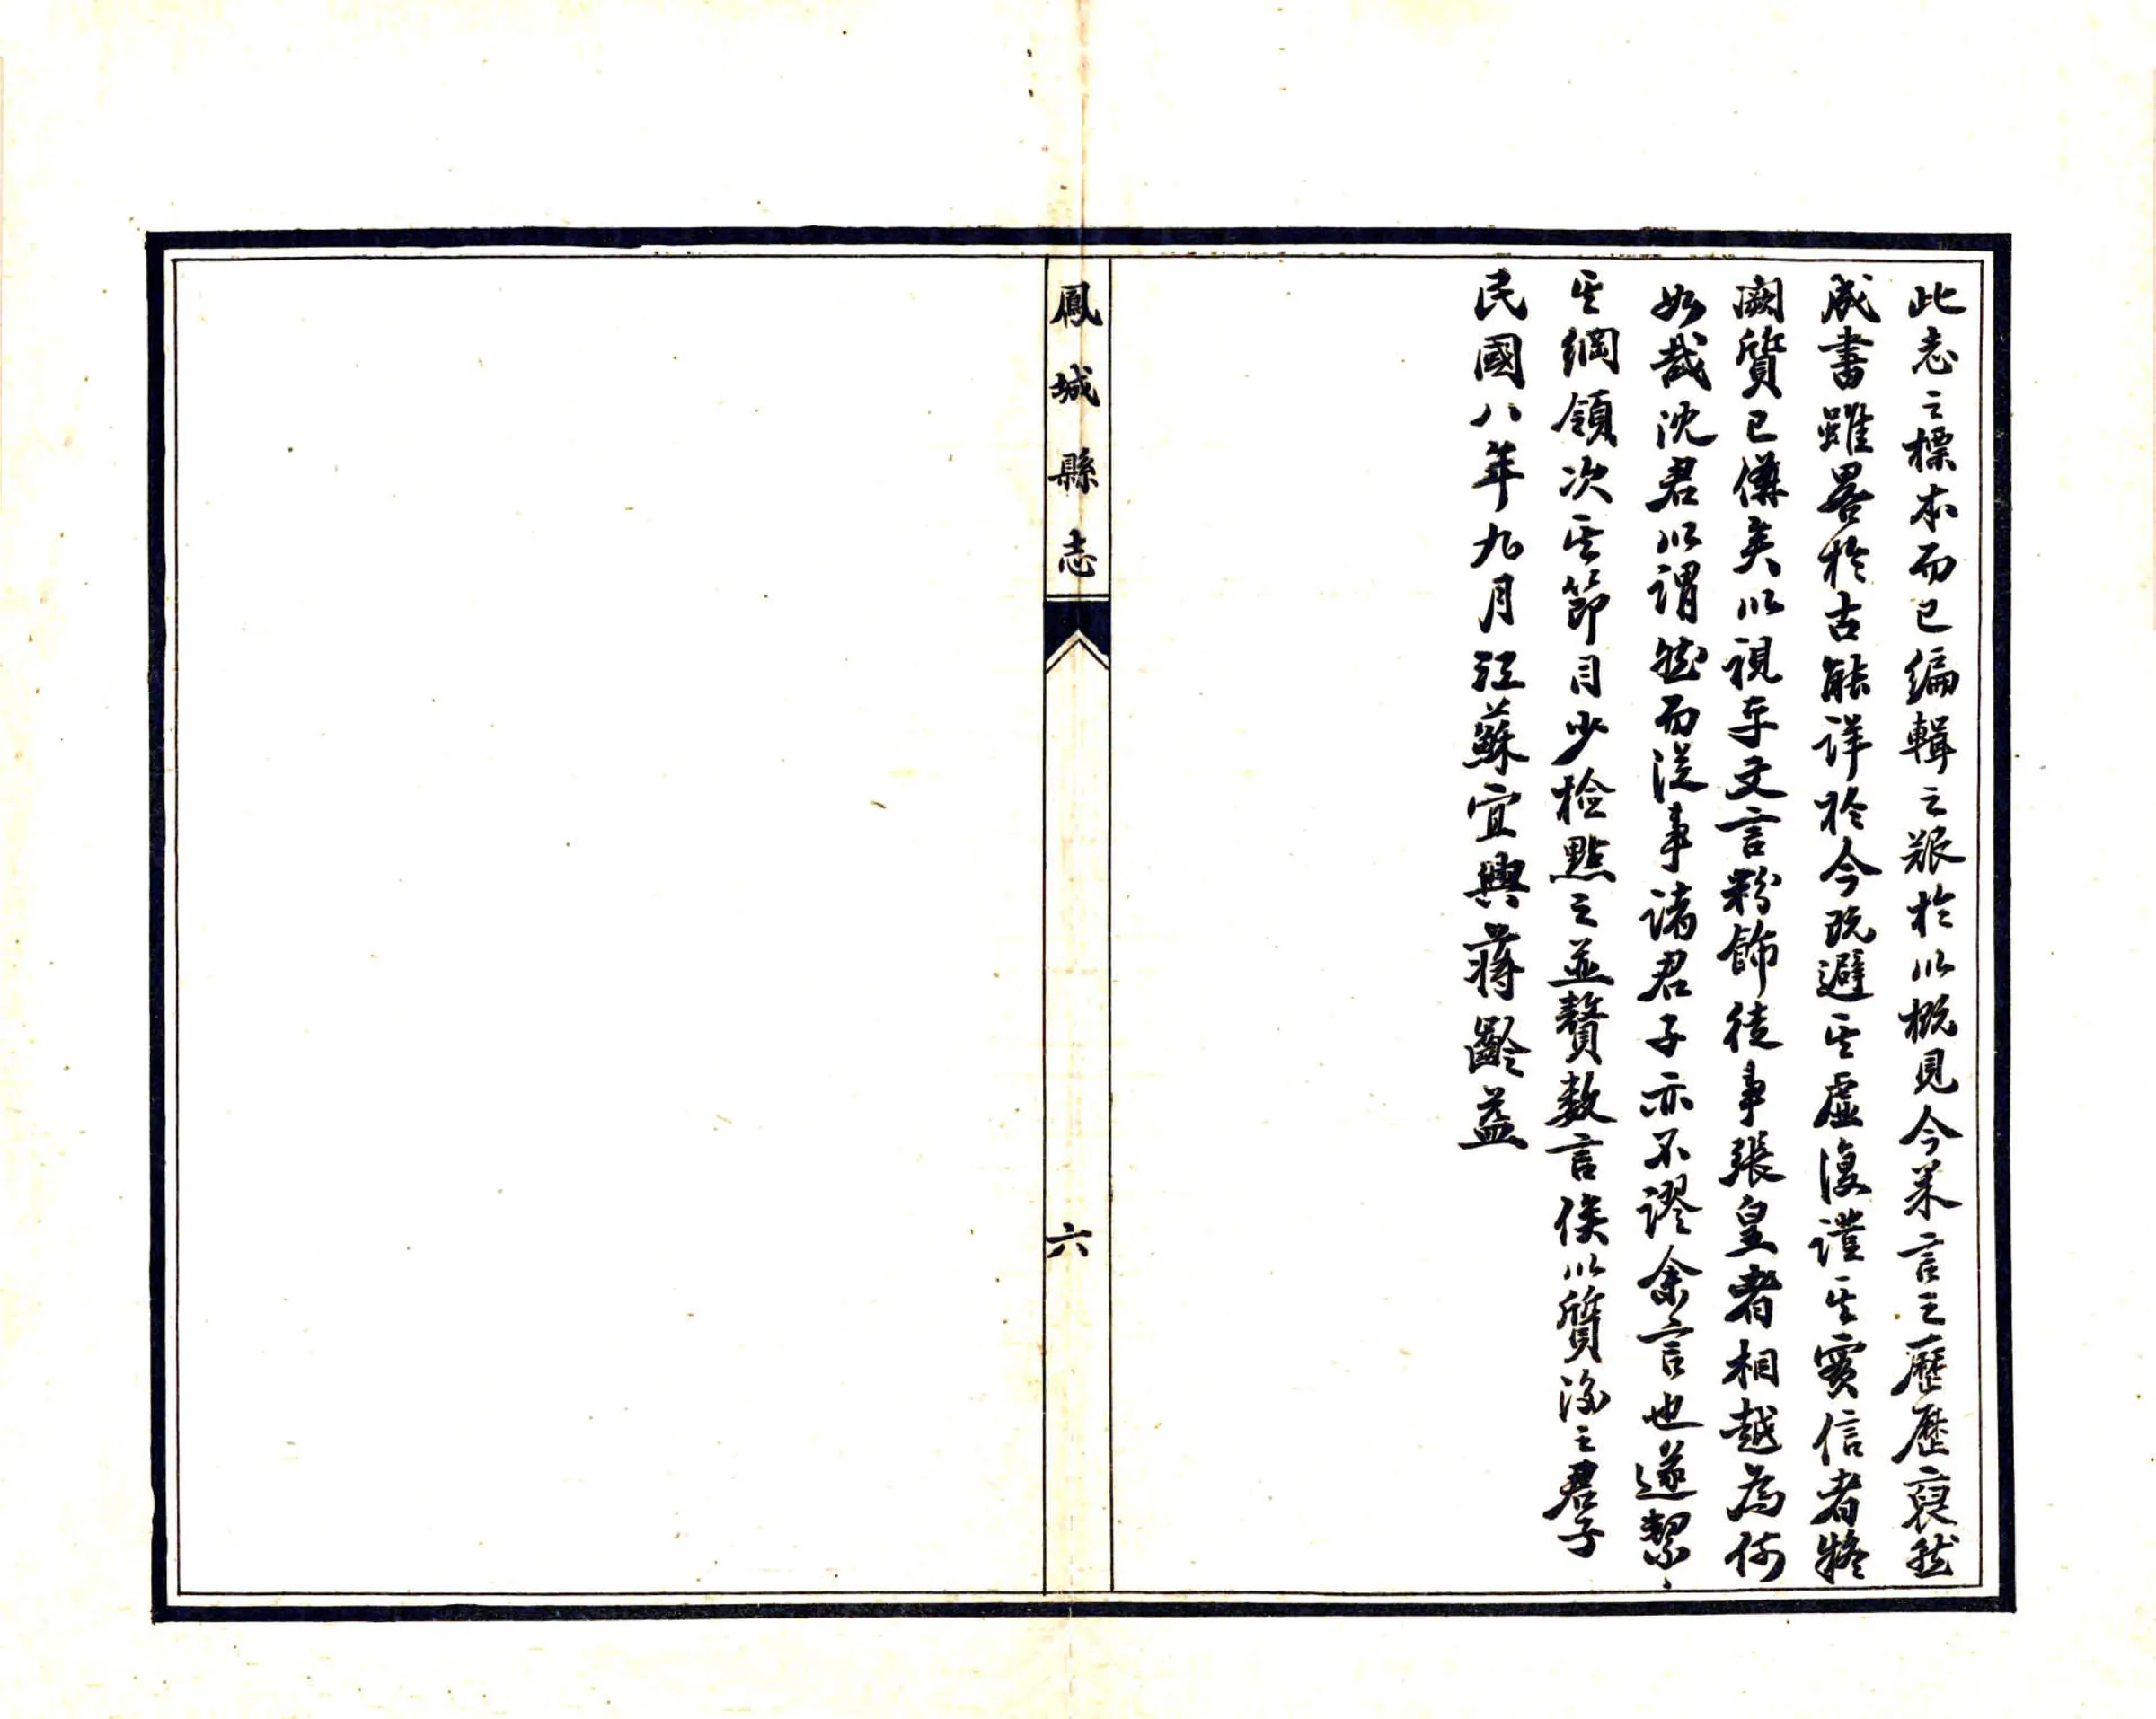 此志之標本而已編輯之艱於以概見今果言之歷歷裒然
成書雖畧於古能詳於今既避其虛復謹其實信者將
闕質已備矣以視夫文言粉飾徒事張皇者相越為何
如哉沈君以謂然而從事諸君子亦不謬余言也遂絜
其綱領次其節目少檢點之並贅數言俟以質後之君子
民國八年九月江蘇宜興蔣齡益
鳳城縣志
六